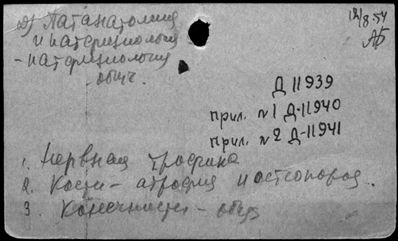 д) Патанатомия
и патфизиология
- патфизиология
общ.
12/8.54
АБ
Д 11939
прил. №1 Д-11940
прил. №2 Д-11941
1. Нервная трофика
2. Кости - атрофия и остеопороз.
3. Конечности - общ